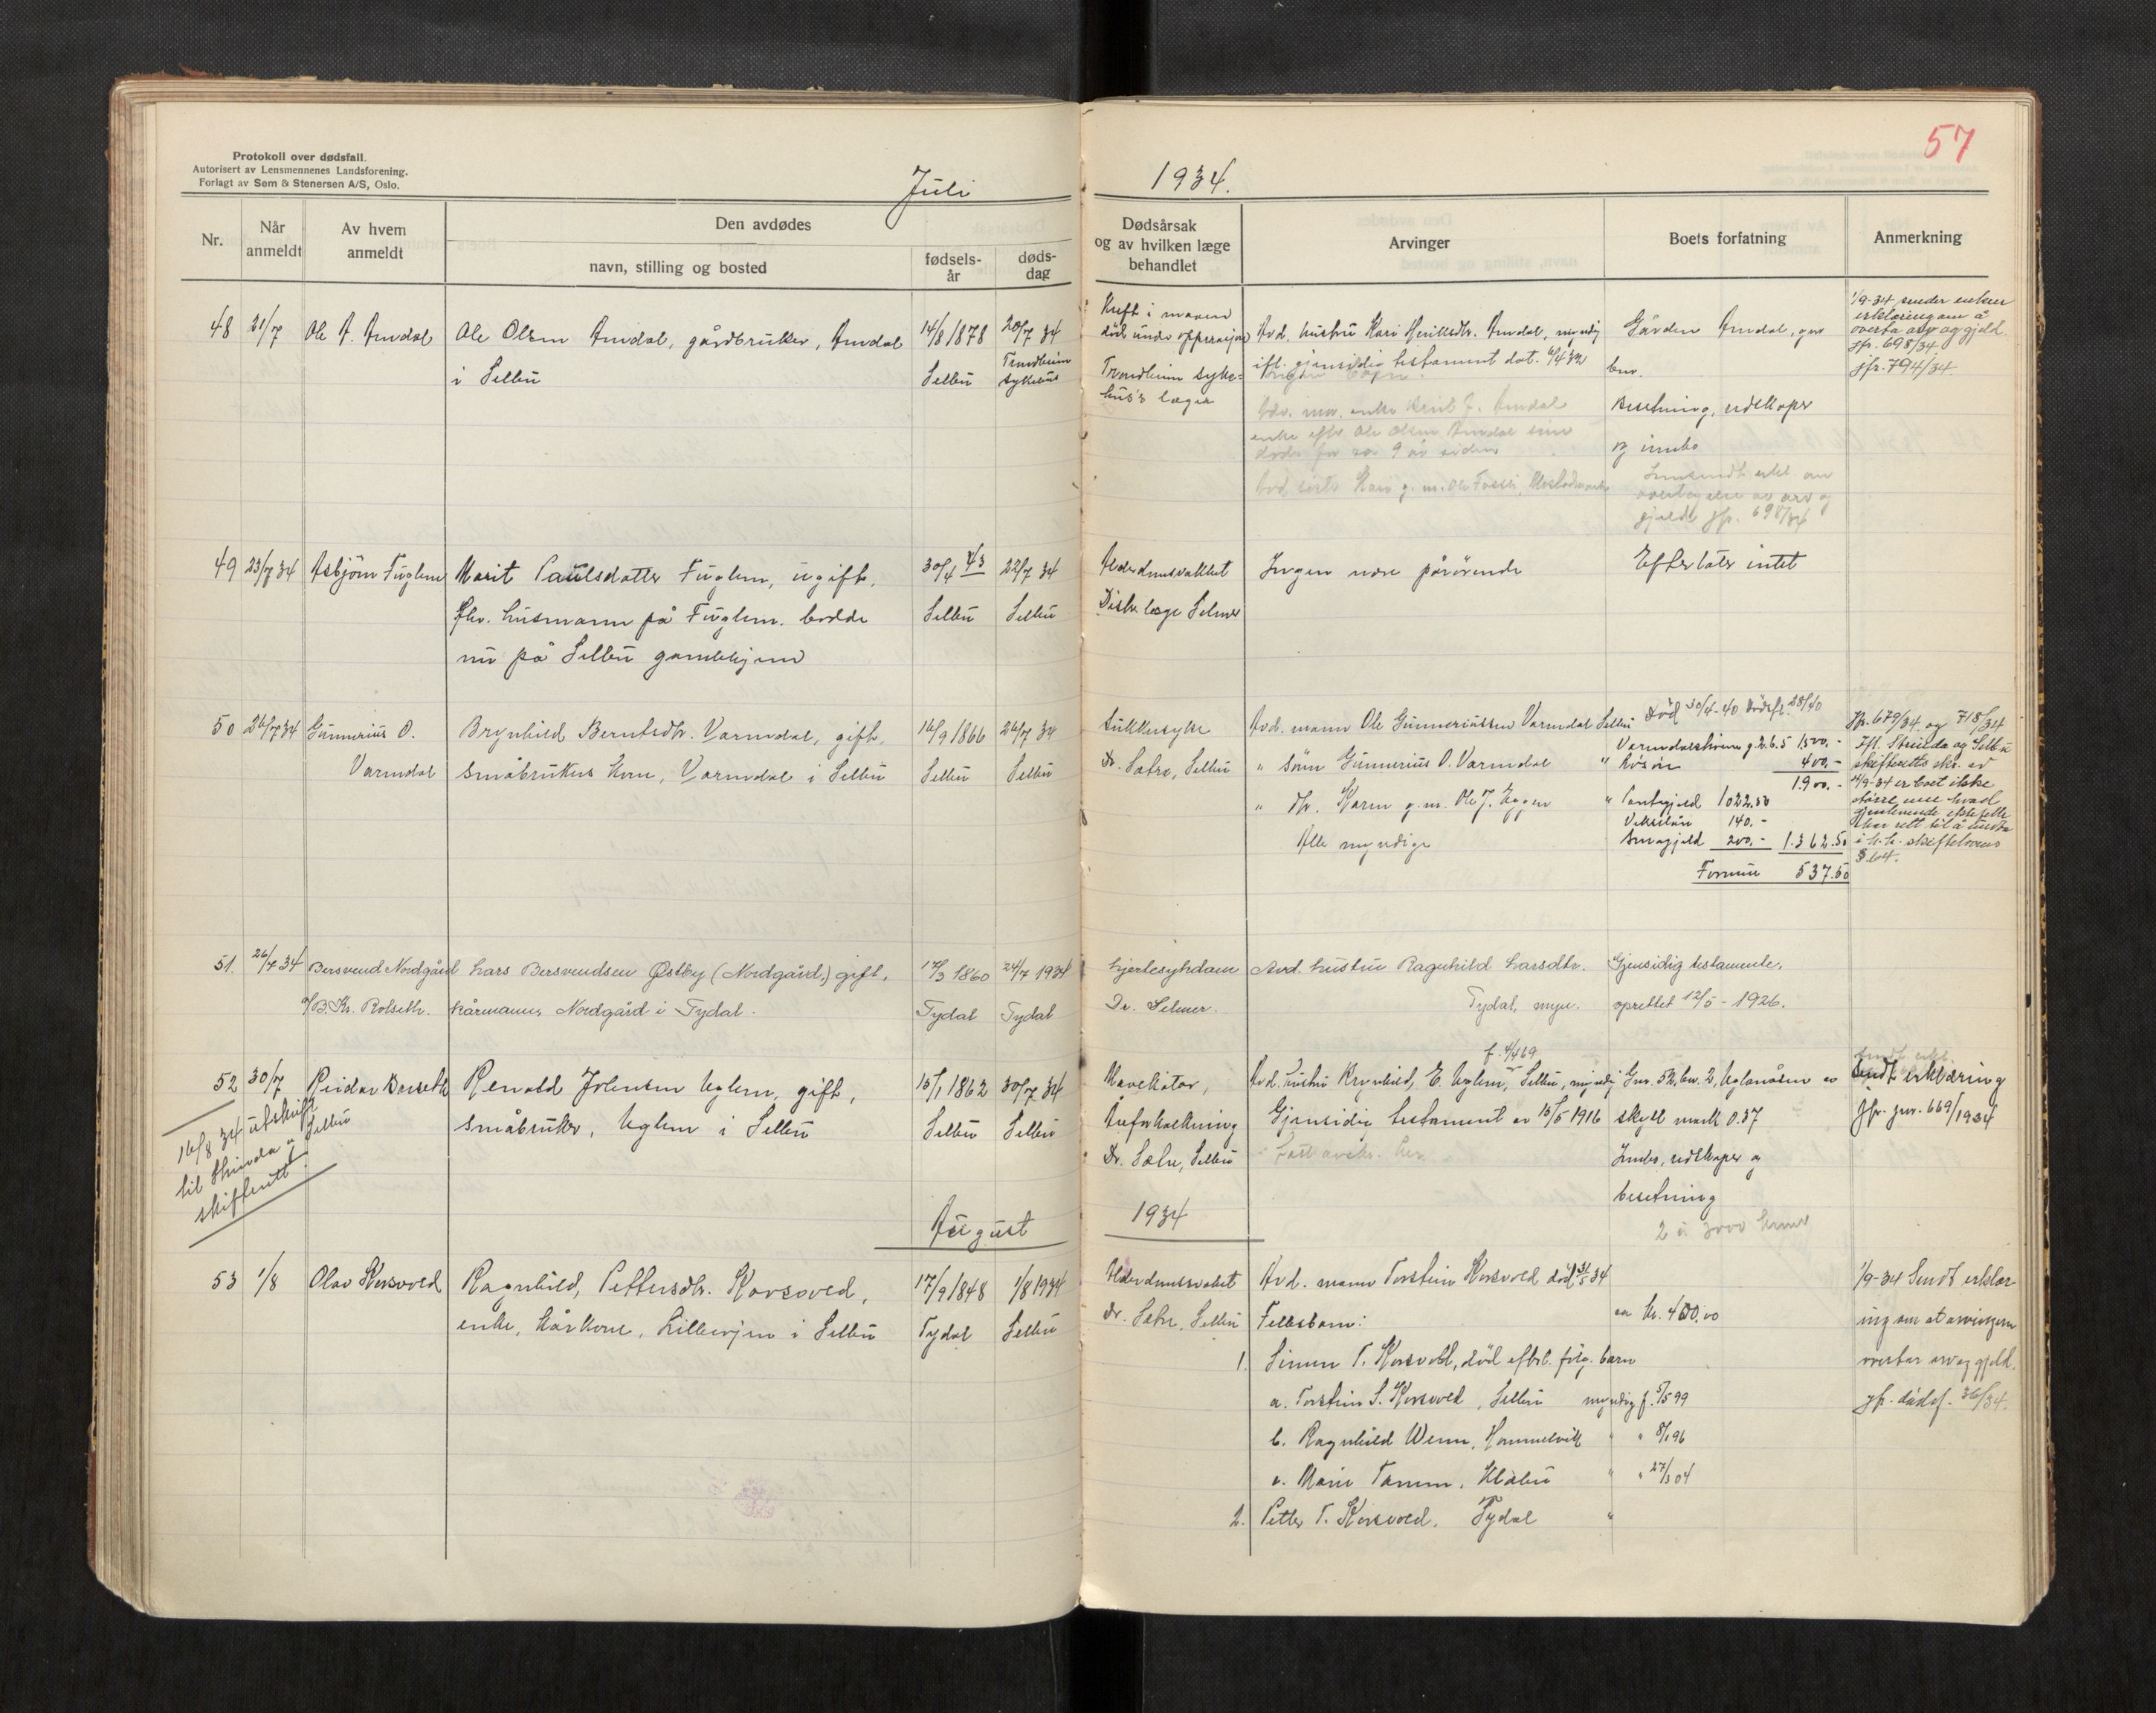 57
Protokoll over dødsfall.
Autorisert av Lensmennenes Landsforening.
Forlagt av Sem & Stenersen A/S, Oslo.
Juli 1934.
Nr. Når anmeldt Av hvem anmeldt Den avdødes navn, stilling og bosted fødselsår dødsdag Dødsårsak og av hvilken læge behandlet Arvinger Boets forfatning Anmerkning
48 21/7 Ole A. Amdal
Ole Olsen Amdal, gårdbruker, Amdal
i Selbu
14/8 1878
Selbu
20/7 34
Trondheim
sykehus
Kreft i maven
död under opperasjon
Trondheim syke=
hus's læger
Avd. hustru Kari Henriksdtr. Amdal, myndig
ifl. gjensidig testament dat.
enke efter Ole Olsen Amdal som
døde for ca 9 år siden
Gården Amdal, gnr
bnr.
Besetning, redskaper
og innbo
Innsendt erkl. om
overtagelse av arv og
gjeld jfr. 698/34
1/9-34 sender enken
erklæring om å
overta arv og gjeld.
jfr. 698/34
jfr. 794/34.
49 23/7 34 Asbjörn Fuglem
Marit Paulsdatter Fuglem, ugift,
fhv. husmann på Fuglem. bodde
nu på Selbu gamlehjem
30/4 43
Selbu
22/7 34
Selbu
Alderdomsvakhet
Distr. læge Selmer
Ingen nære pårörende
Efterlater intet
50 26/7 34 Gunnerius O.
Varmdal
Brynhild Berntsdtr. Varmdal, gift,
småbrukers kone, Varmdal i Selbu
16/9 1866
Selbu
26/7 34
Selbu
Sukkersyke
Dr. Sæhre, Selbu
Avd. mann Ole Gunneriussen Varmdal Selbu
" sönn Gunnerius O. Varmdal "
" dtr. Karen g.m. Ole J. Eggen "
Alle myndige
Död 30/4-40 Dödsf. 28/40
Varmdalsheim g. 2. b. 5 1500.-
Lösöre 400.-
1.900.-
Pantegjeld 1022.50
Veksellån 140.-
Smågjeld 200.- 1.362.50
Formue 537.50
Jfr. 679/34 og 718/34
Ifl. Strinda og Selbu
skifteretts skr. av
14/9-34 er boet ikke
större enn hvad
gjenlevende ektefelle
har rett til å
i h.h. skiftelovens
§ 64.
51. 26/7 34 Bersvend Nordgård
v/B. Kr. Rolseth.
Lars Bersvendsen Østby (Nordgård,) gift,
kårmann, Nordgård i Tydal.
17/3 1860
Tydal
24/7 1934
Tydal
hjertesykdom
Dr. Selmer.
Avd. hustru Ragnhild Larsdtr.
Tydal, myn.
Gjensidig testamente,
oprettet 12/5 - 1926.
52 30/7 Reidar Borseth
Renald Johnsen Uglem, gift,
småbruker, Uglem i Selbu
15/1 1862
Selbu
30/7 34
Selbu
Dr. Sæhre, Selbu
f. 4/4 69
Avd. hustru Brynhild, E. Uglem, Selbu, myndig
Gjensidig testament av 15/5 1916
Gnr. 52, bnr. 2, Uglmåsen av
skyld mark 0.37
Innbo, redskaper og
besetning
2 à 3000 kroner
Sendt erklæring
Jfr. jnr. 669/1934
16/8 34 utskrift
til Strinda og Selbu
skifterett
August 1934
53 1/8 Olav Korsvold
Ragnhild, Pettersdtr. Korsvold,
enke, kårkone, Lillevjen i Selbu
17/9 1848
Tydal
1/8 1934
Selbu
Alderdomssvaket
Dr. Sæhre, Selbu
Avd. mann Torstein Korsvold död 31/5 34
Fellesbarn:
1. Simen T. Korsvold, död efterl. fölg. barn
a. Torstein S. Korsvold, Selbu myndig f. 5/5 99
b. Ragnhild Wenn, Hommelvik " " 8/1 96
c. Marie Tamm, Klæbu " " 27/3 04
2. Petter T. Korsvold, Tydal "
ca kr. 400.00
1/9-34 Sendt erklær
ing om at arvingene
overtar arv og gjeld.
jfr. dødsf. 36/34.